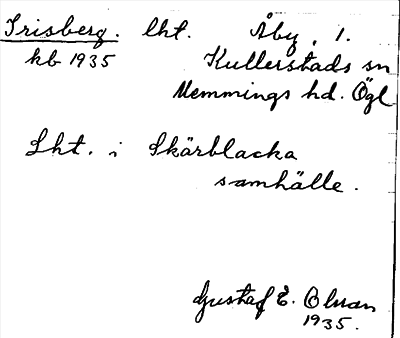 Frisberg. lht. Åby, 1.
kb 1935 Kullerstads sn
Memmings hd. Ögl
Lht. i Skärblacka
samhälle.
Gustaf E. Olsson
1935.